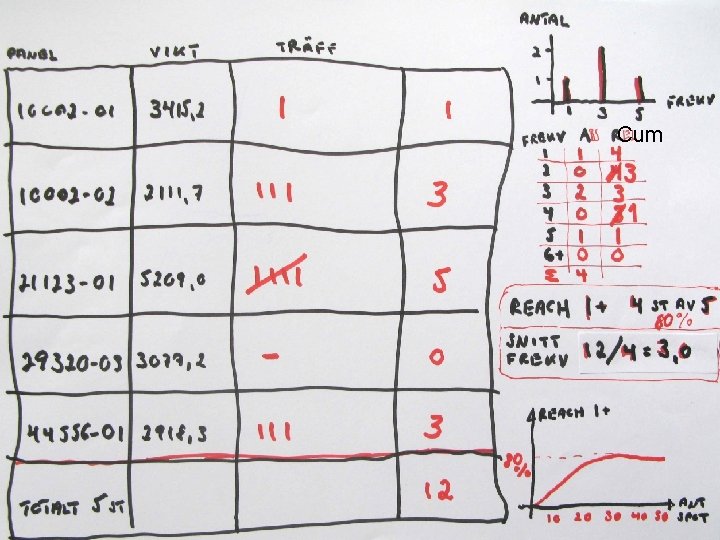 PANEL VIKT TRÄFF
10002-01 3415,2 I 1
10002-02 2111,7 III 3
21123-01 5209,0 IIII 5
29320-03 3077,2 - 0
44556-01 2918,3 III 3
TOTALT 5 ST 12
ANTAL
2
1
1 3 5 FREKV
FREKV Cum
1 1 4
2 0 3
3 2 3
4 0 1
5 1 1
6+ 0 0
Σ 4
REACH 1+ 4 ST AV 5
80%
SNITT
FREKV 12/4 = 3,0
REACH 1+
80%
10 20 30 40 50
ANT
SPOT